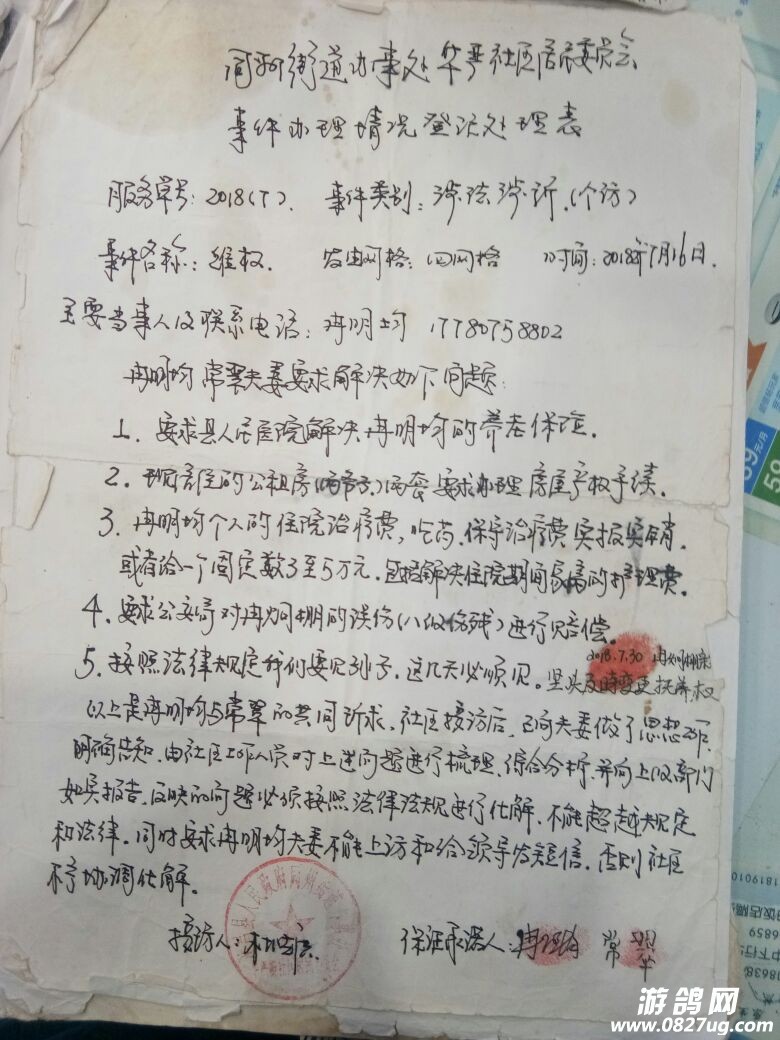 同州街道办事处华严社区居民委员会
事件办理情况登记处理表
服务单号：2018(7). 事件类别：涉法涉诉.(个访)
事件名称：维权. 发生网格：四网格 时间：2018年7月16日.
主要当事人及联系电话：冉明均 17780758802
冉明均 常翠夫妻要求解决如下问题：
1. 要求县人民医院解决冉明均的养老保险.
2. 现居住的公租房(两节子)两套要求办理房屋产权手续.
3. 冉明均个人的住院治疗费，吃药.保守治疗费实报实销.
或者给一个固定数3至5万元.包括解决住院期间家属的护理费.
4. 要求公安局对冉炯棚的误伤(八级伤残)进行赔偿.
2018.7.30
5. 按照法律规定我们要见孙子.这几天必须见.坚决及時变更抚养权
以上是冉明均与常翠的共同诉求.社区接访后.已向夫妻做了思想工作.
明确告知.由社区工作人员对上述问题进行梳理.综合分析.并向上级部门
如实报告.反映的问题必须按照法律法规进行化解.不能超越规定
和法律.同时要求冉明均夫妻不能上访和给领导发短信.否则社区
不予协调化解.
接访人： 保证承诺人：冉明均 常翠
游鸽网
www.0827ug.com